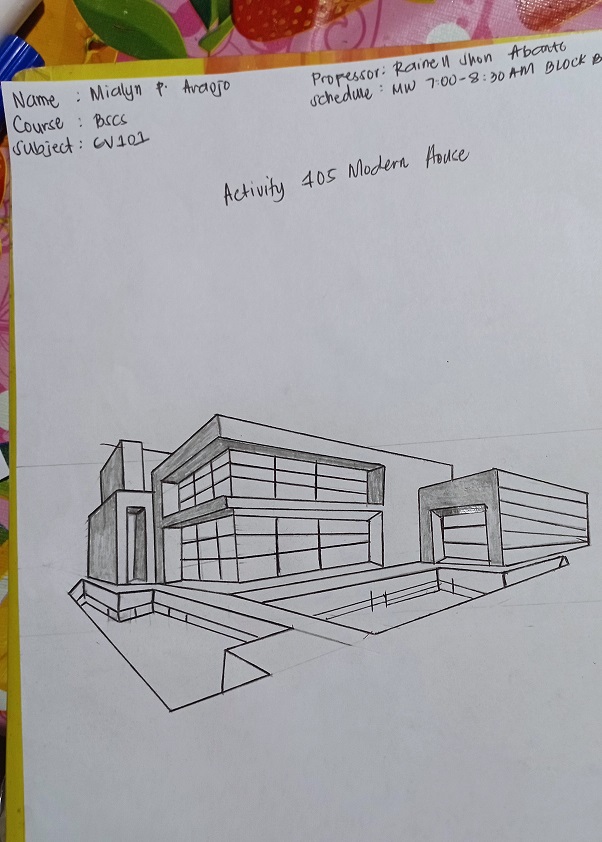 Name : Mialyn P. Araojo
Course : BSCS
Subject : CV101
Professor: Rainell Jhon
Schedule : MW 7:00-8:30 AM BLOCK B
Activity 405 Modern House